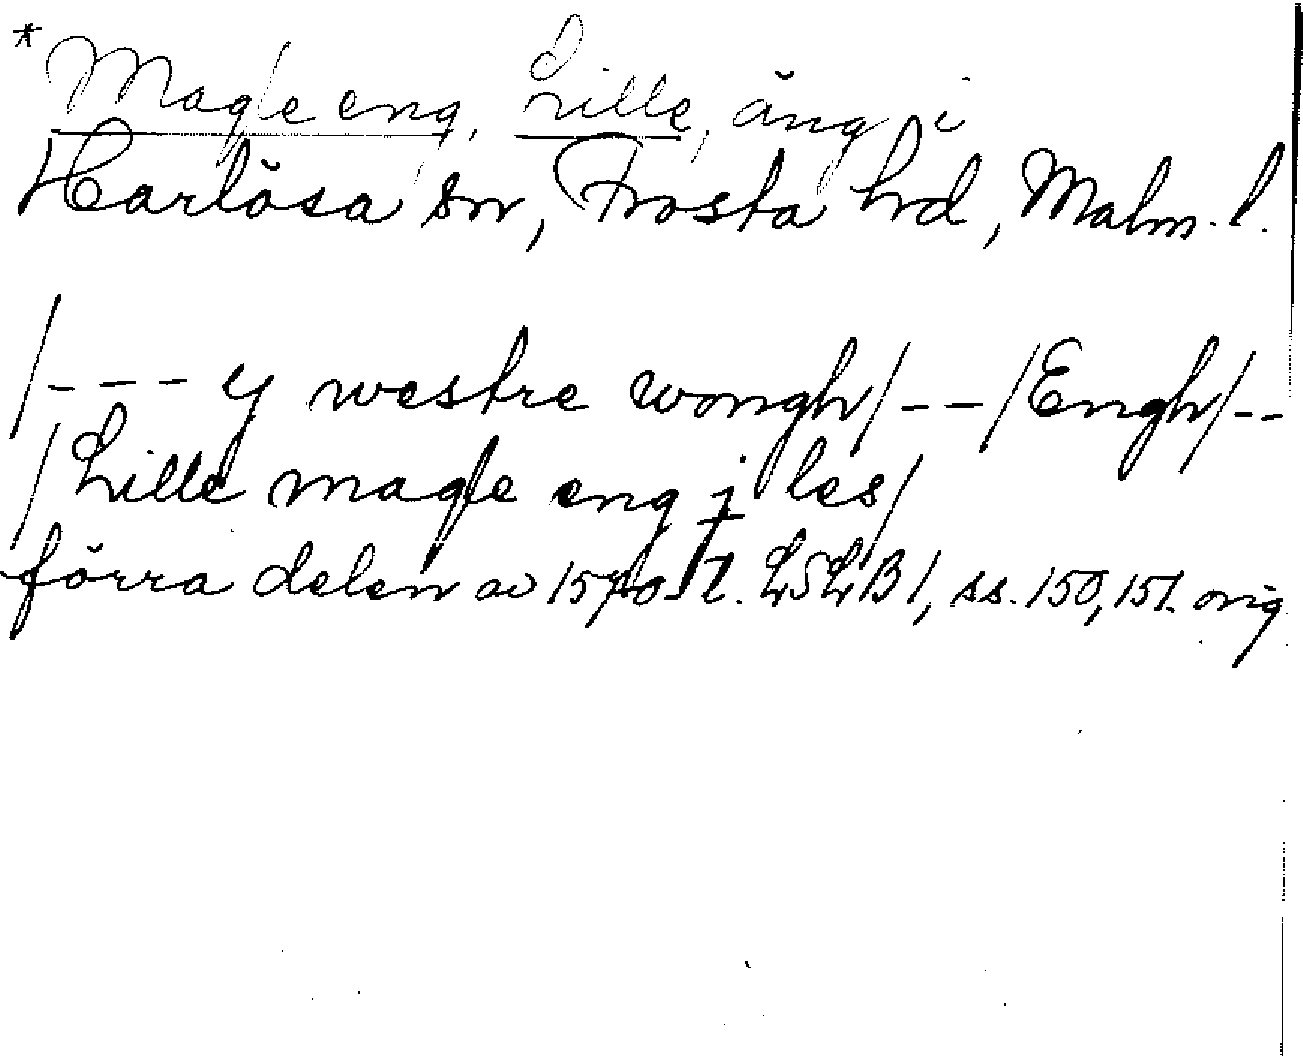 *Magle eng, Lille, äng i
Harlösa sn, Frosta hd, Malm. l.
/--- y westre wongh/--/Engh/--
/Lille magle eng j les/
förra delen av 1570-t. LSLB 1, ss. 150, 151. orig